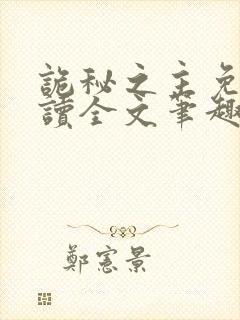 詭秘之主免
讀全文筆趣
鄭憲景